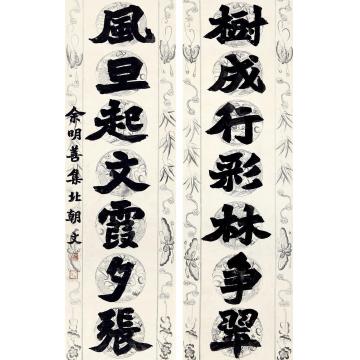 樹成行彩林争翠
風旦起文霞夕張
余明善集北朝文